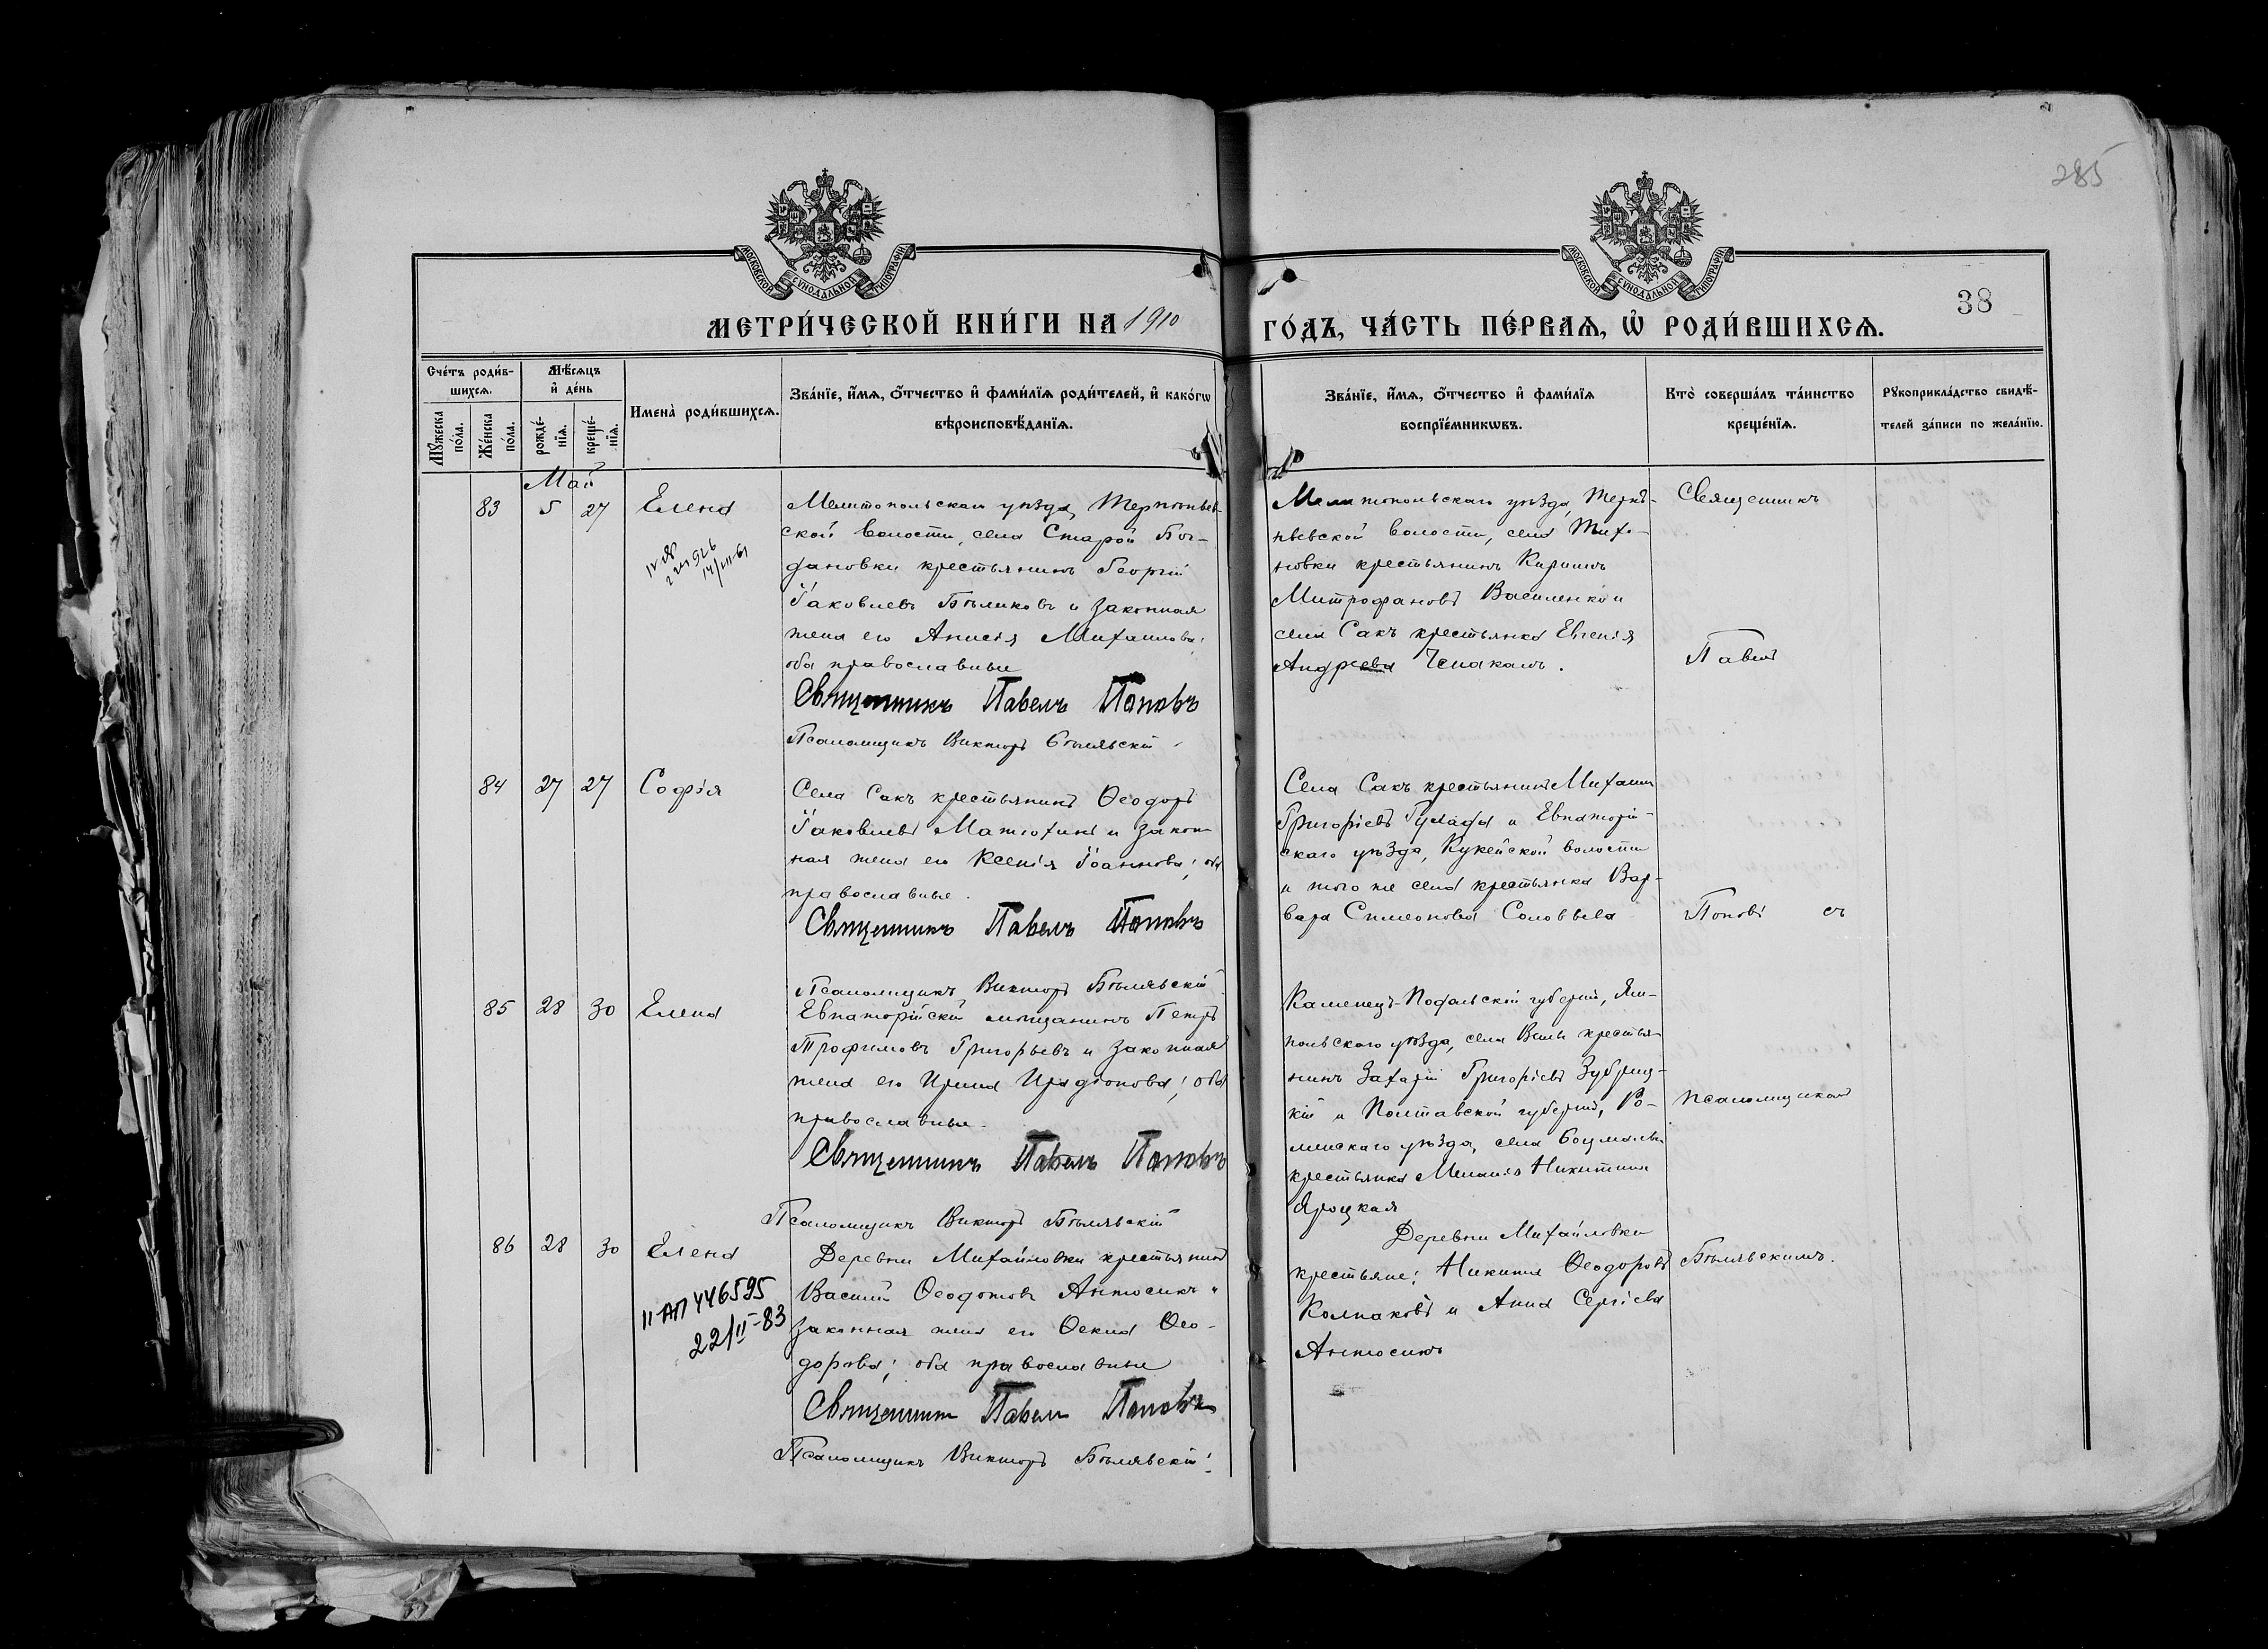 285
МОСКОВСКОЙ СѴНОДАЛЬНОЙ ТИПОГРАФІИ
МОСКОВСКОЙ СѴНОДАЛЬНОЙ ТИПОГРАФІИ
38
МЕТРИ́ЧЕСКОЙ КНИ́ГИ НА 1910
ГО́ДЪ, ЧА́СТЬ ПЕ́РВАѦ, Ѡ҆ РОДИ́ВШИХСѦ.
Сче́тъ роди́в-
шихсѧ.
Мꙋ́жеска
по́ла.
Же́нска
по́ла.
Мѣ́сѧцъ
и҆ де́нь
рожде́-
нїѧ.
креще́-
нїѧ.
Имена̀ роди́вшихсѧ.
Зва́нїе, и҆́мѧ, ѻ҆́тчество и҆ фами́лїѧ роди́телей, и҆ како́гѡ
вѣроисповѣ́данїѧ.
Зва́нїе, и҆́мѧ, ѻ҆́тчество и҆ фами́лїѧ
воспрїе́мникѡвъ.
Кто̀ соверша́лъ та́инство
креще́нїѧ.
Рꙋкоприкла́дство свидѣ́-
телей за́писи по жела́нїю.
Май
83 5 27 Елена
Мелитопольскаго уѣзда, Терпѣньев-
ской волости, села Старой Бог-
дановки крестьянинъ Георгій
Іаковлевъ Бѣликовъ и законная
жена его Анисія Михаилова;
оба православные
Священникъ Павелъ Поповъ
Псаломщикъ Викторъ Бѣлявскій
Мелитопольскаго уѣзда, Терпѣ-
ньевской волости, села Тихо-
новки крестьянинъ Кириллъ
Митрофановъ Василенко и
села Сакъ крестьянка Евгенія
Андреева
Священникъ
Павелъ
84 27 27 Софія
Села Сакъ крестьянинъ Ѳеодоръ
Іаковлевъ Матюхинъ и закон-
ная жена его Ксенія Іоаннова; оба
православные.
Священникъ Павелъ Поповъ
Псаломщикъ Викторъ Бѣлявскій
Села Сакъ крестьянинъ Михаилъ
Григорьевъ и Евпаторій-
скаго уѣзда, волости
и того же села крестьянка Вар-
вара Симеонова Соловьева
Поповъ съ
85 28 30 Елена
Евпаторійскій мѣщанинъ Петръ
Трофимовъ Григорьевъ и законная
жена его Ирина Иродіонова; оба
православные.
Священникъ Павелъ Поповъ
Псаломщикъ Викторъ Бѣлявскій
Каменецъ-Подольской губерніи, Ям-
польскаго уѣзда, села крестья-
нинъ Захарій Григорьевъ Зубриц-
кій и Полтавской губерніи, Ро-
менскаго уѣзда, села
крестьянка Меланія Никитина
Яроцкая
псаломщикомъ
86 28 30 Елена
II-АП 446595
22/II-83
Деревни Михайловки крестьянинъ
Василій Ѳеодотовъ Антосикъ и
законная жена его Ѳекла Ѳео-
дорова; оба православные
Священникъ Павелъ Поповъ
Псаломщикъ Викторъ Бѣлявскій
Деревни Михайловки
крестьяне: Никита Ѳеодоровъ
Колпаковъ и Анна Сергіева
Антосикъ
Бѣлявскимъ.